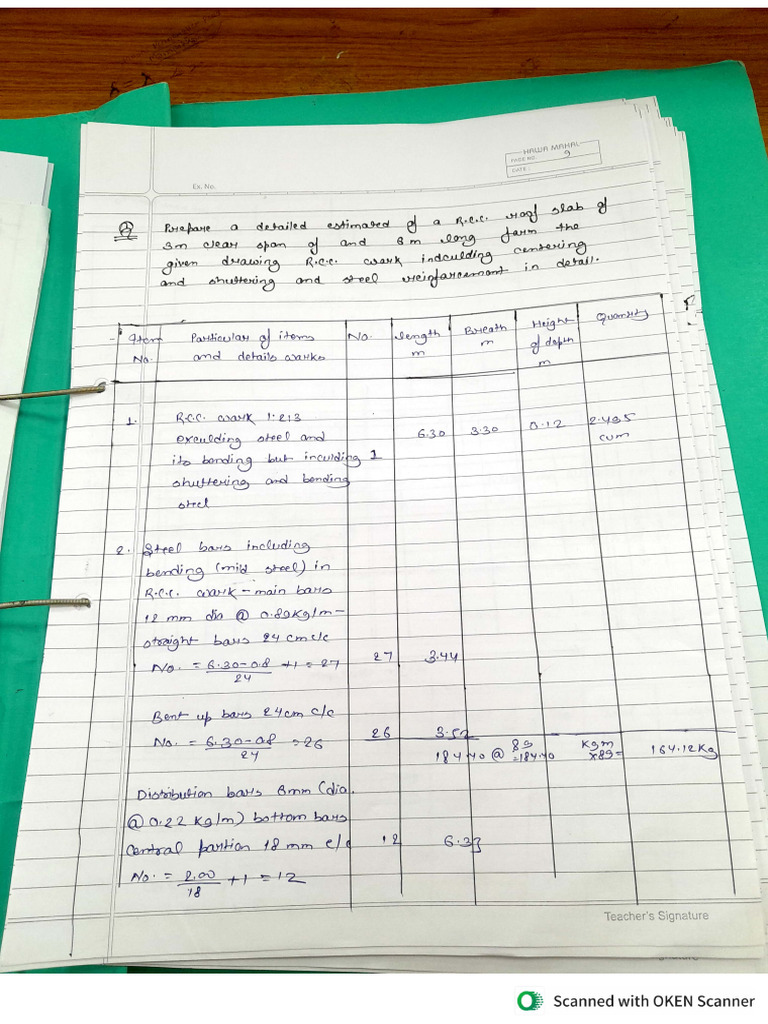 HAWA MAHAL
PAGE NO. 9
DATE:
Ex. No.
Prepare a detailed estimated of a R.C.C. roof slab of
3m clear span of and 6m long farm the
given drawing R.C.C. work indculding centering
and shuttering and steel reinfarcement in detail.
Item No. Particular of items and details works No. length m Breath m Height of depth m Quantity
1. R.C.C. work 1:2:3
exculding steel and 6.30 3.30 0.12 2.495 cum
its bending but inculding 1
shuttering and bending
steel
2. Steel bars including
bending (mild steel) in
R.C.C. work - main bars
12 mm dia @ 0.89 kg/m -
straight bars 24 cm c/c
No. = 6.30-0.8/24 +1 = 27 27 3.44
Bent up bars 24cm c/c
No. = 6.30-08/24 = 26 26 3.52
184.40 @ 89 =184.40 kgm ×89= 164.12kg
Distribution bars 6mm (dia
@ 0.22 kg/m) bottom bars
central partion 18 mm c/c 12 6.33
No. = 2.00/18 +1 = 12
Teacher's Signature
Scanned with OKEN Scanner